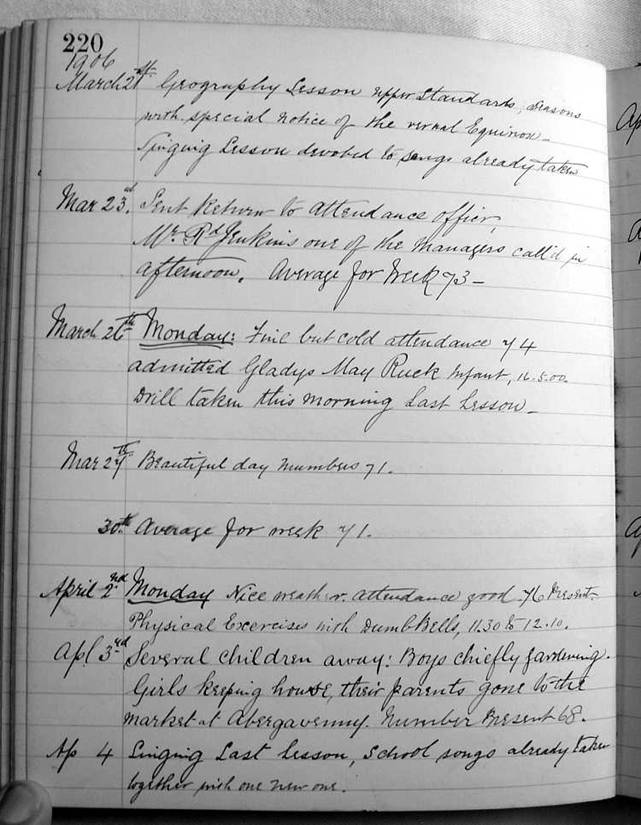 220
1906
March 21st Geography Lesson upper Standards, Seasons
with special notice of the vernal Equinox_
Singing Lesson devoted to songs already taken
Mar 23rd Sent Return to attendance officer,
Mr. Rd Jenkins one of the Managers call'd in
afternoon. Average for Week 73_
March 26th Monday: Fine but cold attendance 74
admitted Gladys May Ruck Infant, 16.5.00.
Drill taken this morning Last Lesson_
Mar 27th Beautiful day Numbers 71.
30th Average for week 71.
April 2nd Monday Nice weather. attendance good 76 Present.
Physical Exercises with Dumb Bells, 11.30 to 12.10.
Apl 3rd Several children away: Boys chiefly gardening.
Girls keeping house, their parents gone to the
market at Abergavenny. Number Present 68.
Ap 4 Singing Last Lesson, School songs already taken
together with one new one.